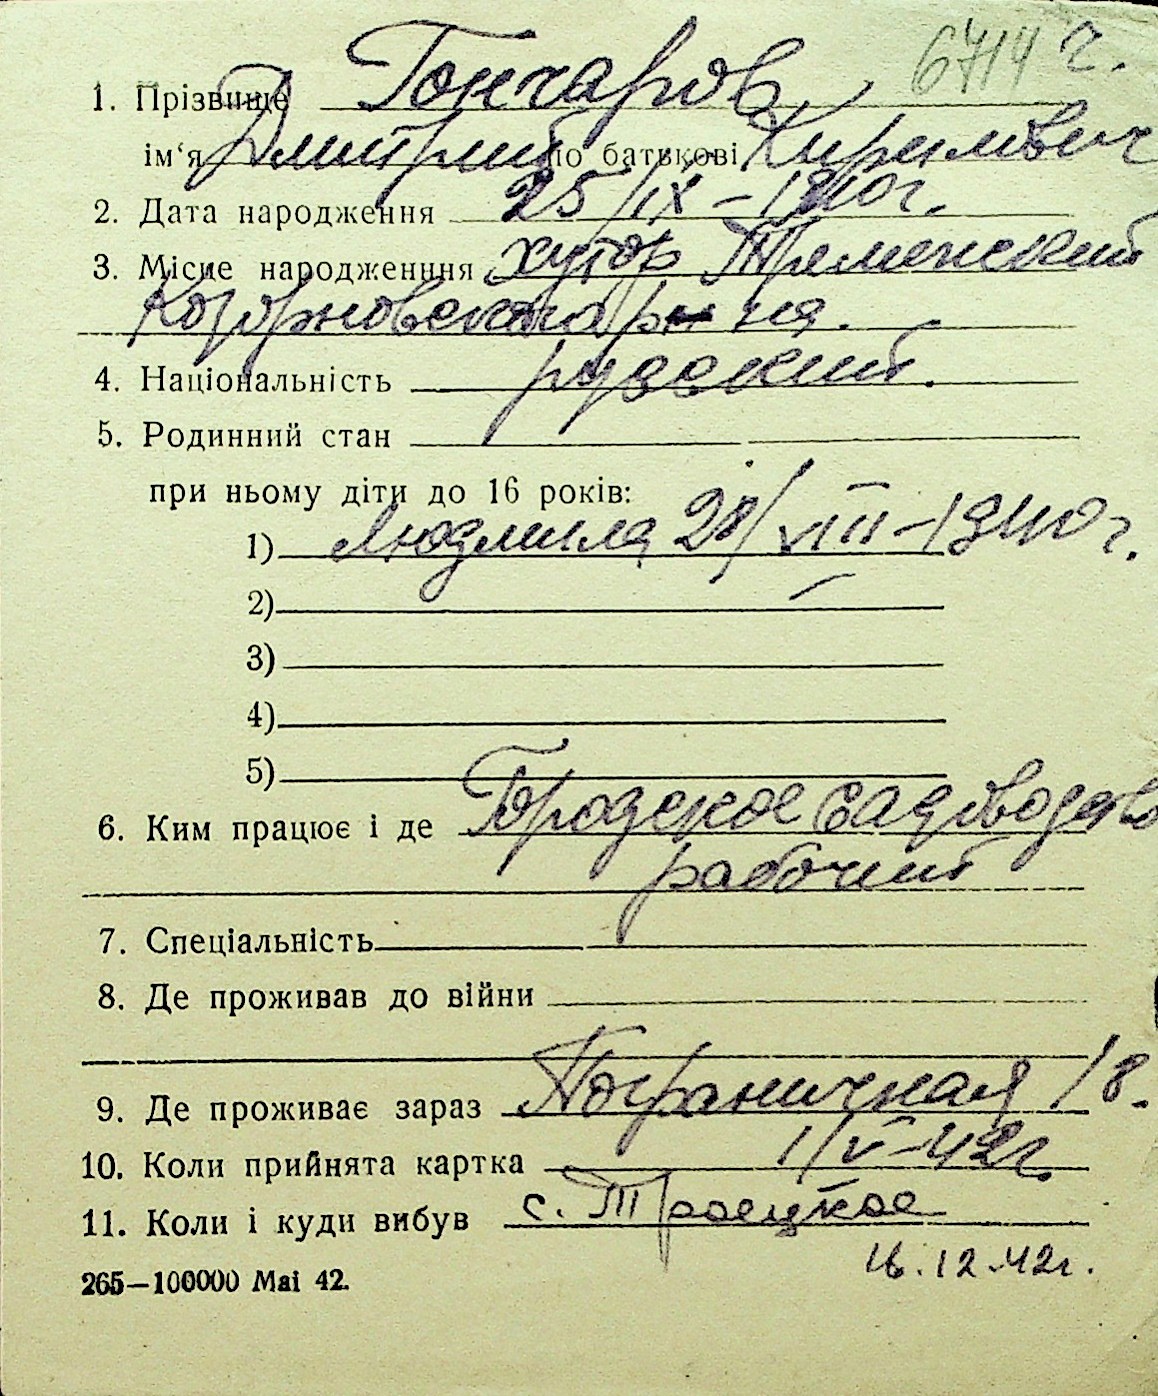 6714 г.
1. Прізвище Гончаров
ім‘я Дмитрий по батькові
2. Дата народження 25/IX – 1910 г.
3. Місце народженння хутор
р на.
4. Національність русский.
5. Родинний стан
при ньому діти до 16 років:
1) Людмила 28/VIII – 1940 г.
2) –
3)
4)
5)
6. Ким працює і де Городское садоводство
рабочий
7. Спеціальність
8. Де проживав до війни
9. Де проживає зараз Пограничная 18.
10. Коли прийнята картка 1/VI – 42 г.
11. Коли і куди вибув с. Троецкое
16.12.42 г.
265—100000 Mai 42.